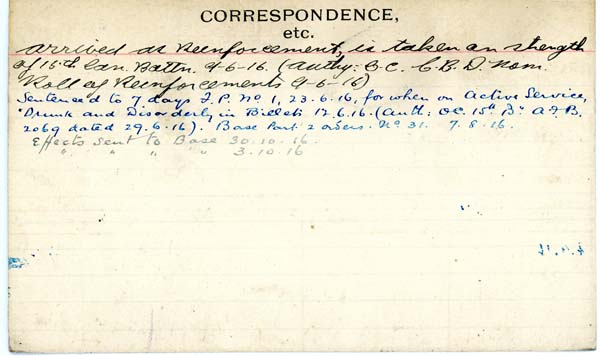 CORRESPONDENCE,
etc.
Arrived as Reinforcement, is taken on strength
of 15th Can. Battn. 9-6-16. (Authy: O.C. C.B.D. Nom.
Roll of Reinforcements 9-6-16)
Sentenced to 7 days F.P. No 1, 23.6.16, for when on Active Service,
"Drunk and Disorderly in Billets 17.6.16. (Auth: OC. 15th Bn A.F.B.
2069 dated 29.6.16). Base Part 2 orders. No 31. 7.8.16.
Effects sent to Base 30.10.16.
" " " " 3.10.16